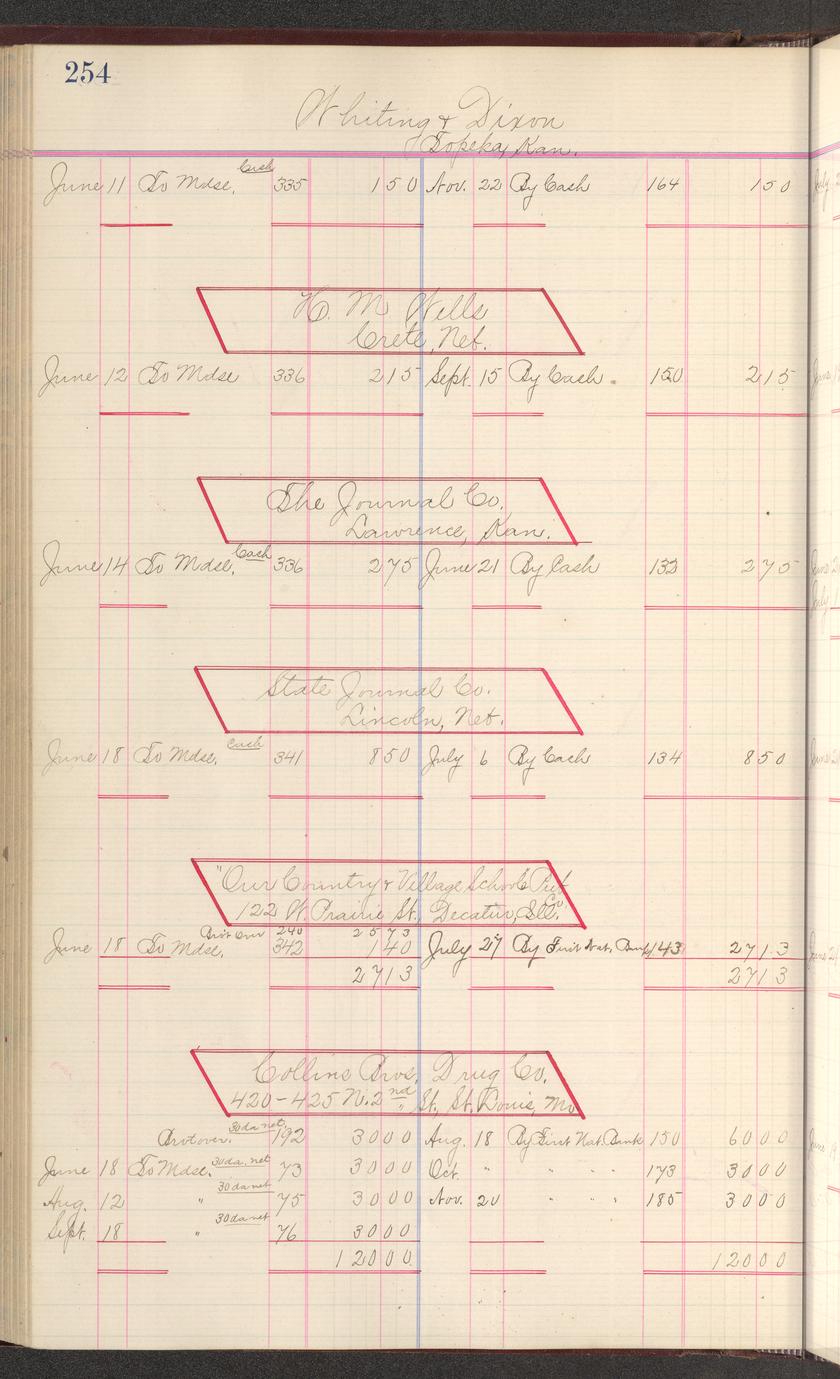 254
Whiting & Dixon
Topeka, Kan.
June 11 To Mdse, Cash 335 150 Nov. 22 By Cash 164 150
H. M. Wells
Crete, Neb.
June 12 To Mdse 336 215 Sept. 15 By Cash. 150 215
The Journal Co.
Lawrence, Kan.
June 14 To Mdse, Cash 336 275 June 21 By Cash 132 275
State Journal Co.
Lincoln, Neb.
June 18 To Mdse, Cash 341 850 July 6 By Cash 134 850
"Our Country & Village Schools Pub
Co.
122 W. Prairie St., Decatur, Ills.
Brot Over 240 2573
June 18 To Mdse, 342 140 July 27 By First Nat. Bank 143 2713
2713 2713
Collins Bros. Drug Co.
420-425 N. 2nd St, St. Louis, Mo
Brot over. 30 da net. 192 3000 Aug. 18 By First Nat. Bank 150 6000
June 18 To Mdse. 30 da. net 73 3000 Oct. " " " " 173 3000
Aug. 12 " 30 da net 75 3000 Nov. 20 " " " 185 3000
Sept. 18 " 30 da net 76 3000
12000 12000